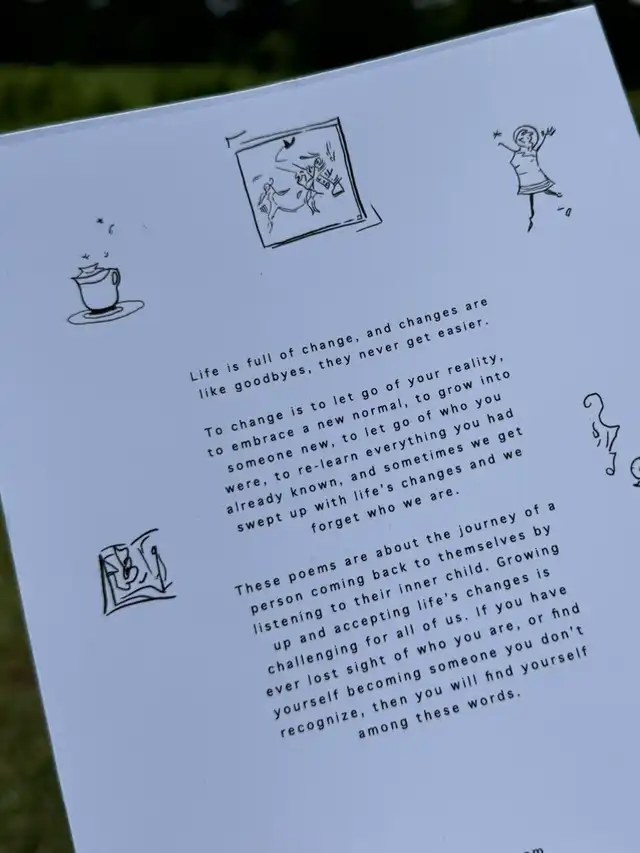 Life is full of change, and changes are
like goodbyes, they never get easier.
To change is to let go of your reality,
to embrace a new normal, to grow into
someone new, to let go of who you
were, to re-learn everything you had
already known, and sometimes we get
swept up with life's changes and we
forget who we are.
These poems are about the journey of a
person coming back to themselves by
listening to their inner child. Growing
up and accepting life's changes is
challenging for all of us. If you have
ever lost sight of who you are, or find
yourself becoming someone you don't
recognize, then you will find yourself
among these words.